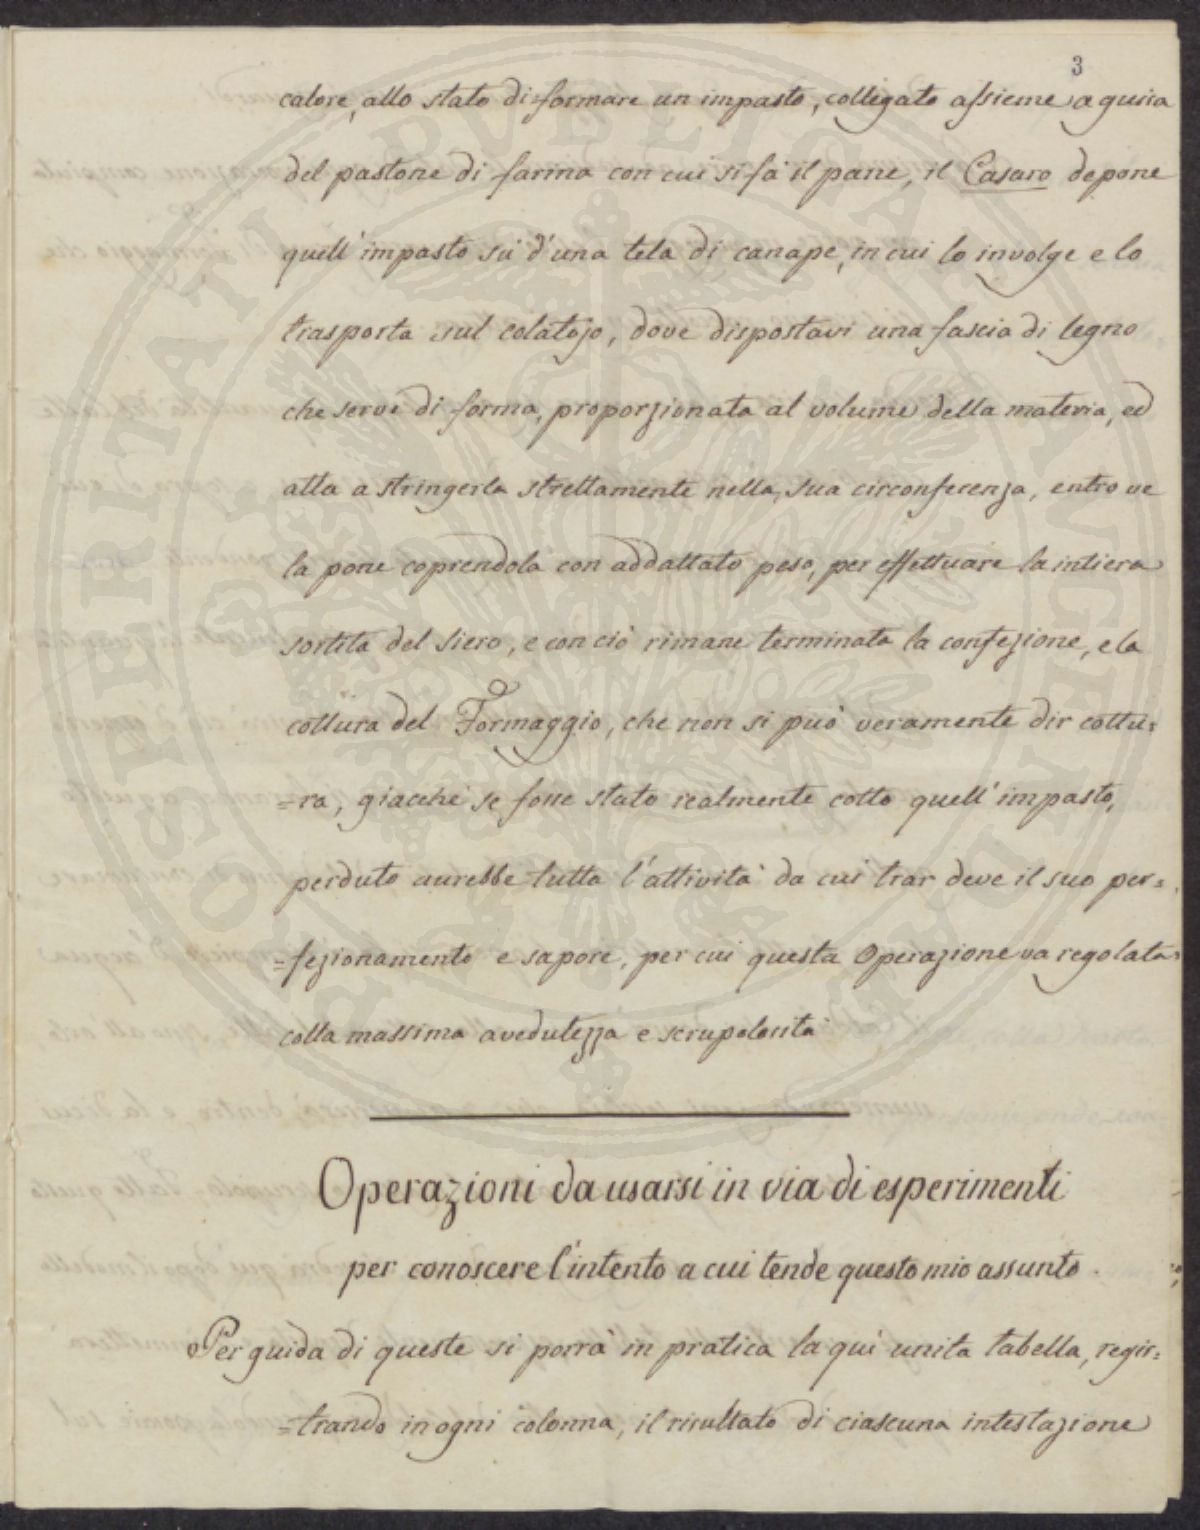 3
calore, allo stato di formare un impasto, collegato assieme a guisa
del pastone di farina con cui si fà il pane, il Casaro depone
quell'impasto sù d'una tela di canape, in cui lo involge e lo
trasporta sul colatojo, dove dispostavi una fascia di legno
che serve di forma, proporzionata al volume della materia, ed
atta a stringerla strettamente nella sua circonferenza, entro ve
la pone coprendola con addattato peso, per effettuare la intiera
sortita del siero, e con ciò rimane terminata la confezione, e la
cottura del Formaggio, che non si può veramente dir cottu=
=ra, giacchè se fosse stato realmente cotto quell'impasto,
perduto aurebbe tutta l'attività da cui trar deve il suo per=
=fezionamento e sapore, per cui questa Operazione va regolata
colla massima avedutezza e scrupolosità
Operazioni da usarsi in via di esperimenti
per conoscere l'intento a cui tende questo mio assunto.
Per guida di queste si porrà in pratica la qui unita tabella, regis=
=trando in ogni colonna, il risultato di ciascuna intestazione
PROSPERITATI PUBLICAE AUGENDAE